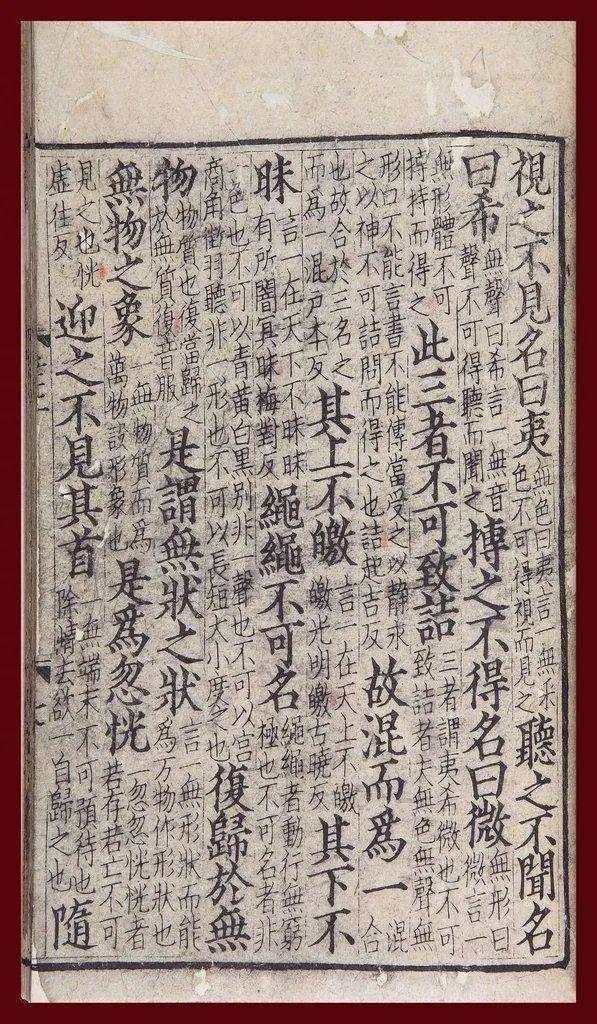 視之不見名曰夷無色曰夷言一無采色不可得視而見之聽之不聞名
曰希無聲曰希言一無音聲不可得聽而聞之搏之不得名曰微無形曰微言一
無形體不可搏持而得之此三者不可致詰三者謂夷希微也不可致詰者夫無色無聲無
形口不能言書不能傳當受之以靜求之以神不可詰問而得之也詰起吉反故混而為一混合
也故合於三名之而為一混戶本反其上不皦言一在天上不皦皦光明皦古曉反其下不
昧言一在天下不昧昧有所闇冥昧梅對反繩繩不可名繩繩者動行無窮極也不可名者非
一色也不可以青黃白黑別非一聲也不可以宮商角徵羽聽非一形也不可以長短大小度之也復歸於無
物物質也復當歸之於無質復音服是謂無狀之狀言一無形狀而能為万物作形狀也
無物之象一無物質而為萬物設形象也是為忽恍一忽忽恍恍者若存若亡不可
見之也恍虛往反迎之不見其首一無端末不可預待也除情去欲一自歸之也隨